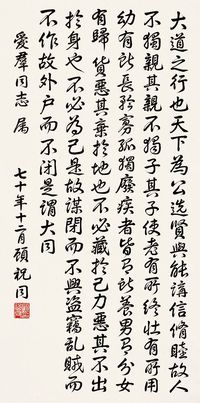 大道之行也天下為公選賢與能講信脩睦故人
不獨親其親不獨子其子使老有所終壯有所用
幼有所長矜寡孤獨廢疾者皆有所養男有分女
有歸貨惡其棄於地也不必藏於己力惡其不出
於身也不必為己是故謀閉而不興盜竊亂賊而
不作故外戶而不閉是謂大同
愛群同志 屬
七十年十二月 顧祝同